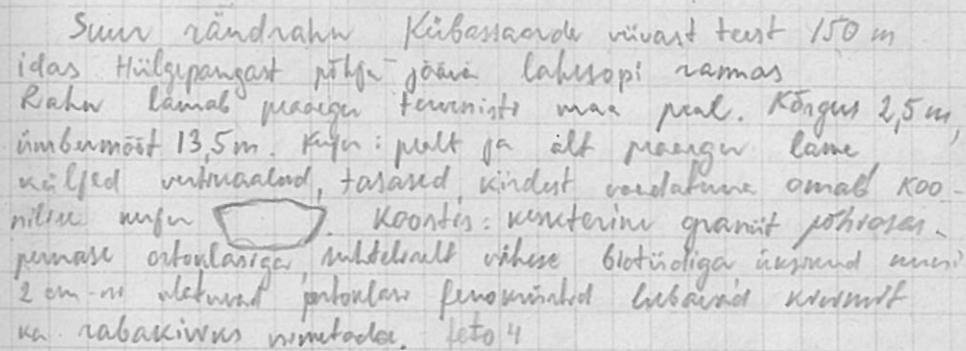 Suur rändrahn Kübassaarde viivast teest 150 m
idas Hülgepangast põhja jääva lahesopi rannas
Rahn lamab praegu tervenisti maa peal. Kõrgus 2,5 m,
ümbermõõt 13,5 m. Kuju: pealt ja alt praegu lame
küljed vertikaalsed, tasased, kirdest vaadatuna omab koo-
nilise kuju. Koostis: keskterine graniit
ortoklasiga, suhteliselt vähese biotiidiga üksikud kuni
2 cm-ni ulatuvad ortoklasi fenokristid lubavad kivimit
ka rabakiviks nimetada. foto 4